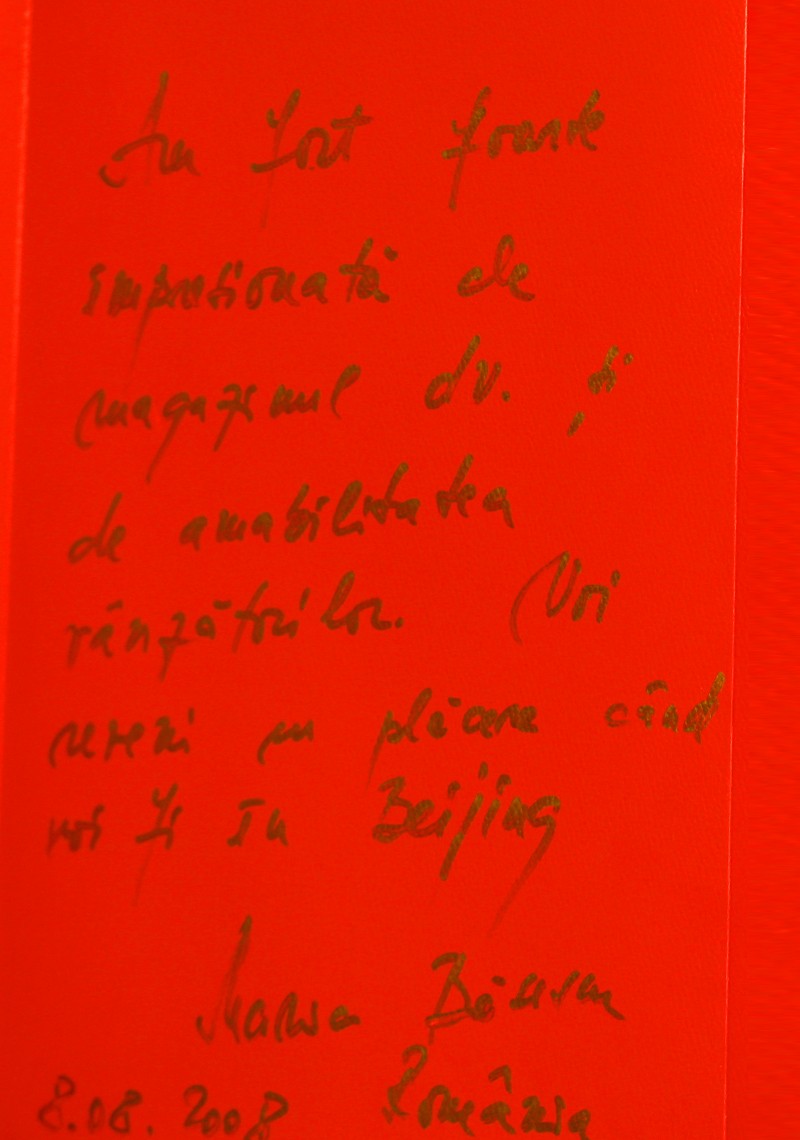 Am fost foarte
impresionată de
magazinul dv. și
de amabilitatea
vânzătorilor. Voi
reveni cu plăcere când
voi fi în Beijing
Maria
8.08.2008 România